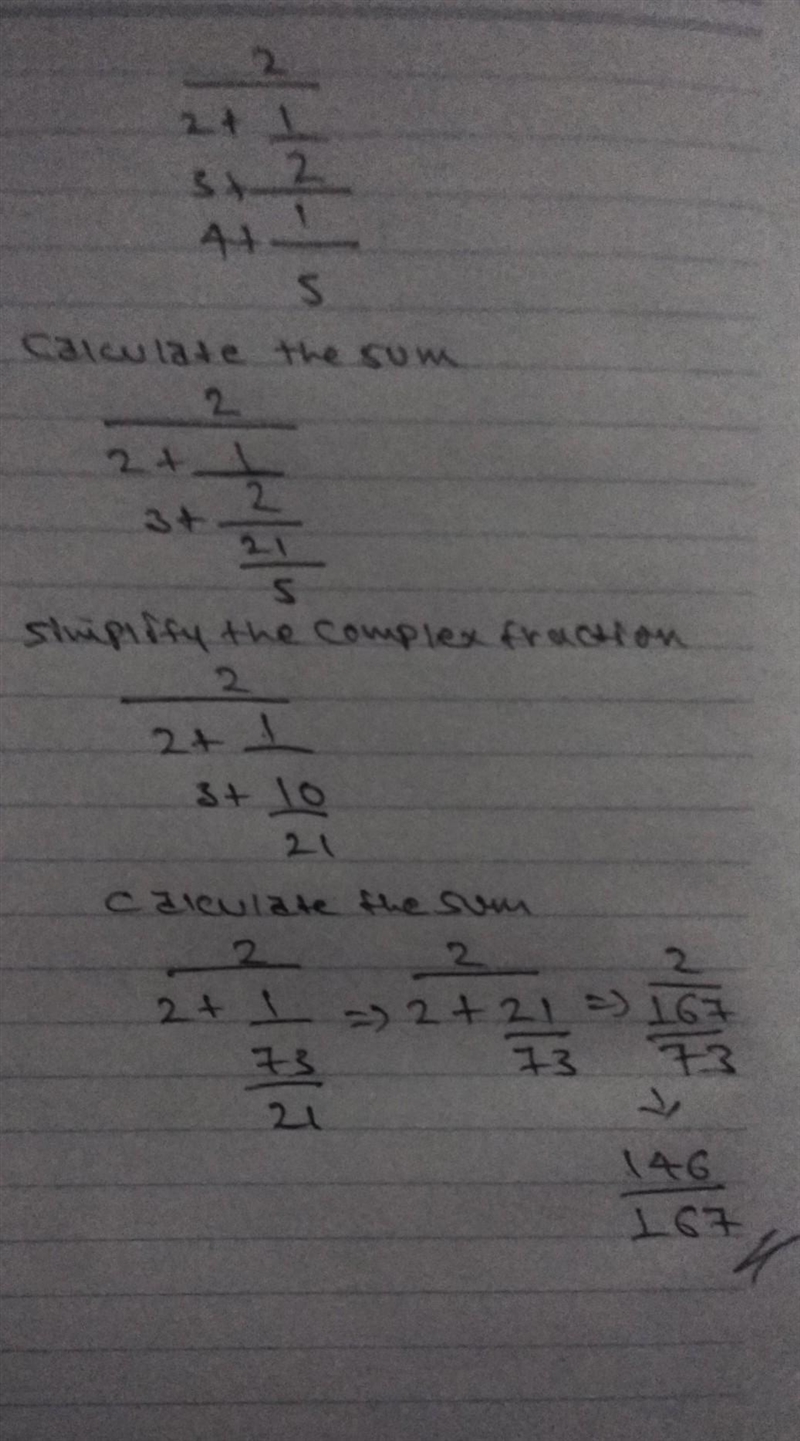 2
2 + 1
3 + 2
4 + 1
5
Calculate the sum
2
2 + 1
3 + 2
21
5
Simplify the complex fraction
2
2 + 1
3 + 10
21
Calculate the sum
2 2 2
2 + 1 ⇒ 2 + 21 ⇒ 167
73 73 73
21 ↓
146
167